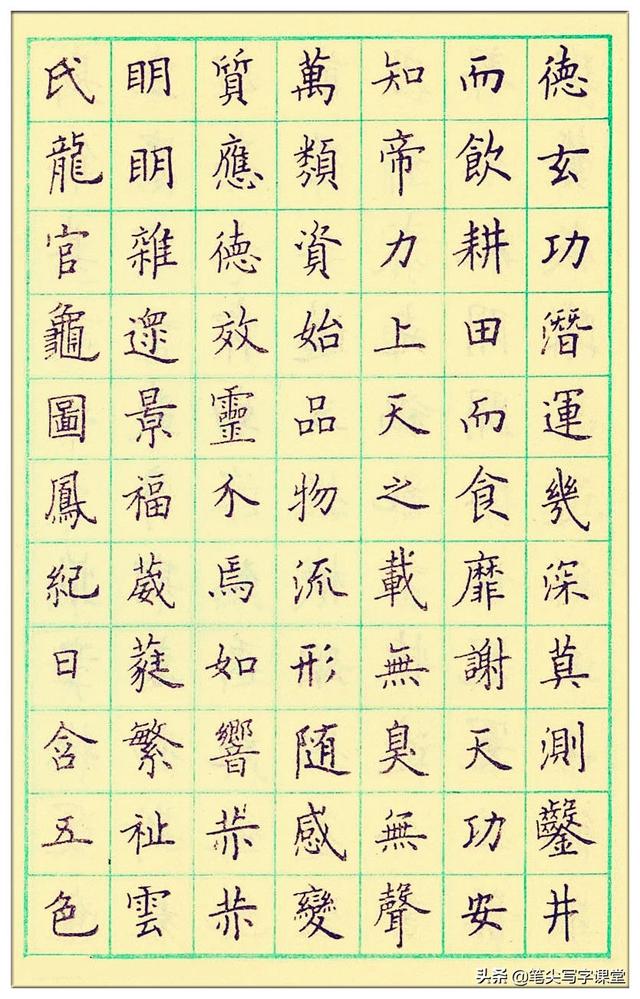 德玄功潛運幾深莫測鑿井
而飲耕田而食靡謝天功安
知帝力上天之載無臭無聲
萬類資始品物流形随感變
質應德效靈介焉如響赫赫
明明雜遝景福葳蕤繁祉雲
氏龍官龜圖鳳紀日含五色
头条 @笔尖写字课堂